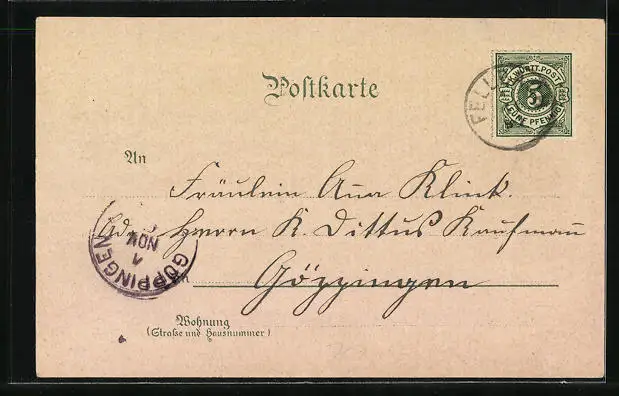 Postkarte
K. WÜRTT. POST
5
FÜNF PFENNIG
FELL
An
Fräulein Ana Klink.
Adr. Herrn K. Dittus Kaufmann
Göppingen
GÖPPINGEN
1 NOV
in
Wohnung
(Straße und Hausnummer)